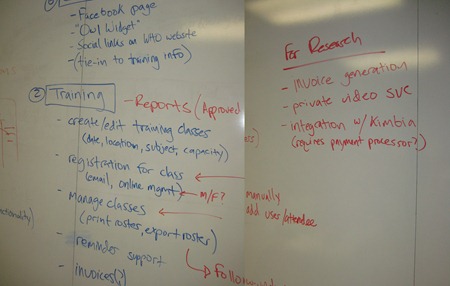 - Facebook page
- "Owl Widget"
- Social links on WHO website
- (tie-in to training info)
② Training - Reports (Approved
- create/edit training classes
(date, location, subject, capacity)
- registration for class
(email, online mgmt) ← M/F?
- Manage classes
(print roster, export roster)
- reminder support
- invoices(?)
For Research
- Invoice generation
- private video svc
- integration w/ Kimbia
(requires payment processor?)
manually
add user/attendee